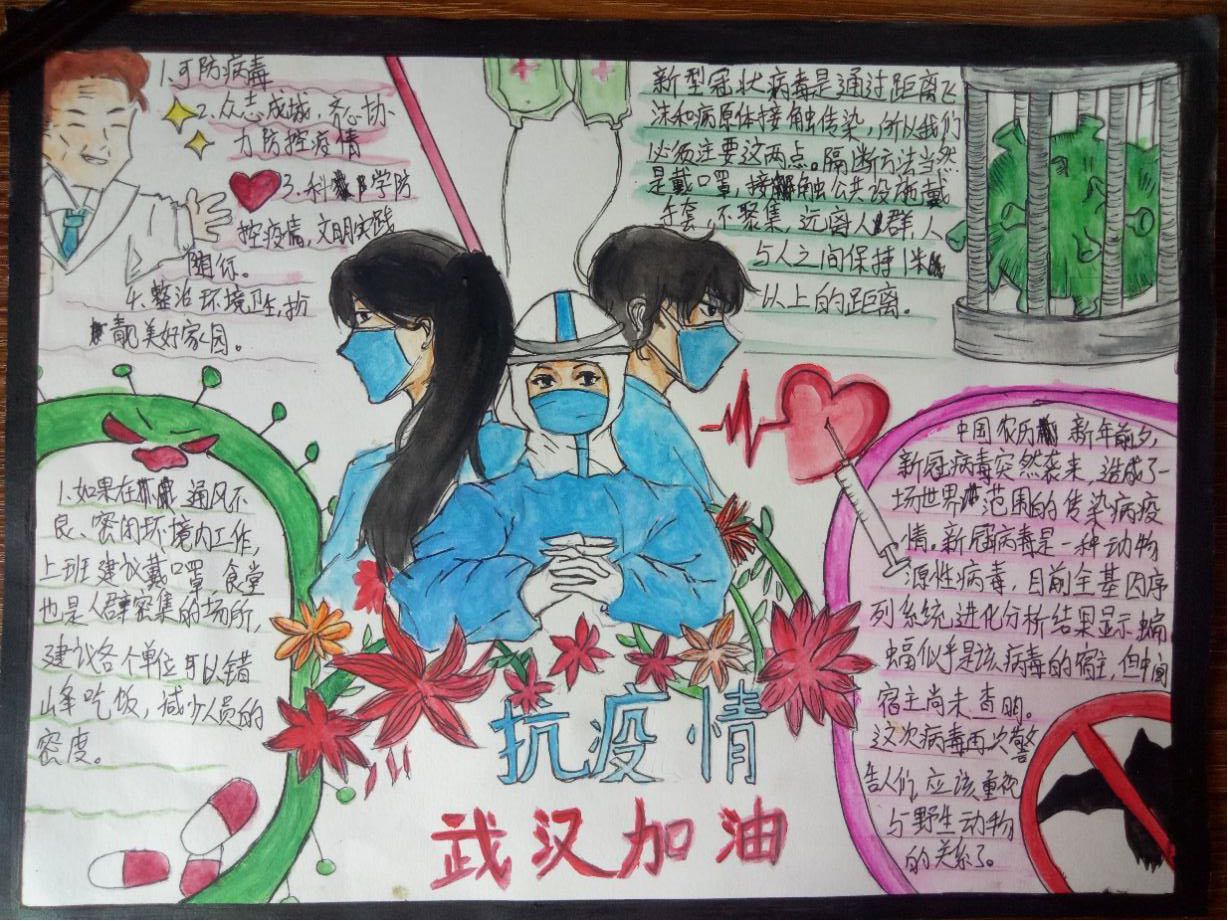 1、可防病毒
2、众志成城,齐心协
力防控疫情
3、科学防
控疫情,文明实践
随你。
4、整治环境卫生,扮
靓美好家园。
新型冠状病毒是通过距离飞
沫和病原体接触传染,所以我们
必须注要这两点。隔断方法当然
是戴口罩,接触公共设施戴
手套,不聚集,远离人群,人
与人之间保持1米
以上的距离。
1、如果在通风不
良、密闭环境内工作,
上班建议戴口罩,食堂
也是人群密集的场所,
建议各个单位可以错
峰吃饭,减少人员的
密度。
中国农历新年前夕,
新冠病毒突然袭来,造成了一
场世界范围的传染病疫
情。新冠病毒是一种动物
源性病毒,目前全基因序
列系统进化分析结果显示,蝙
蝠似乎是该病毒的宿主,但中间
宿主尚未查明。
这次病毒再次警
告人们,应该重视
与野生动物
的关系了。
抗疫情
武汉加油